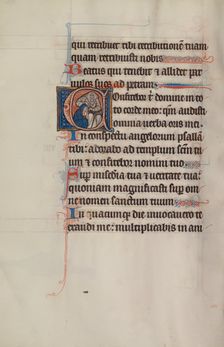 qui retribuet tibi retributionem tuam
quam retribuisti nobis.
Beatus qui tenebit et allidet par
uulos suos ad petram.
Confitebor tibi domine in to
to corde meo: qm audisti
omnia uerba oris mei.
In conspectu angelorum psallā
tibi: adorabo ad templum scm tuū
et confitebor nomini tuo.
Sup misedia tua et ueritate tua:
quoniam magnificasti sup om
ne nomen sanctum tuum.
In quacumq die inuocauero te
exaudi me: multiplicabis in ani